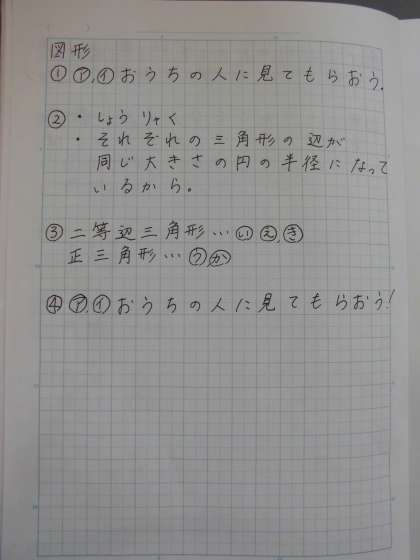 図形
① ㋐, ㋑ おうちの人に見てもらおう.
② ・しょうりゃく
・それぞれの三角形の辺が
同じ大きさの円の半径になって
いるから。
③ 二等辺三角形…ⓘ ⓔ, ⓚ
正三角形…ⓤ, ⓚ
④ ㋐, ㋑ おうちの人に見てもらおう!